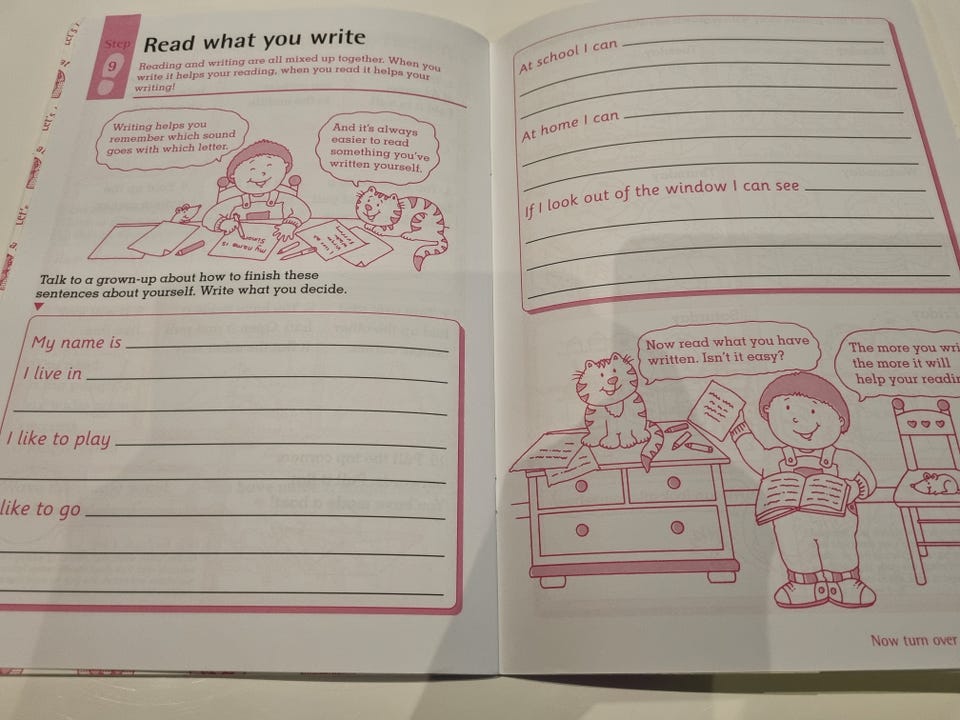 Step
9
Read what you write
Reading and writing are all mixed up together. When you
write it helps your reading, when you read it helps your
writing!
Writing helps you
remember which sound
goes with which letter.
And it's always
easier to read
something you've
written yourself.
my name is
Simon
Talk to a grown-up about how to finish these
sentences about yourself. Write what you decide.
My name is
I live in
I like to play
like to go
At school I can
At home I can
If I look out of the window I can see
Now read what you have
written. Isn't it easy?
The more you wri
the more it will
help your readin
Now turn over